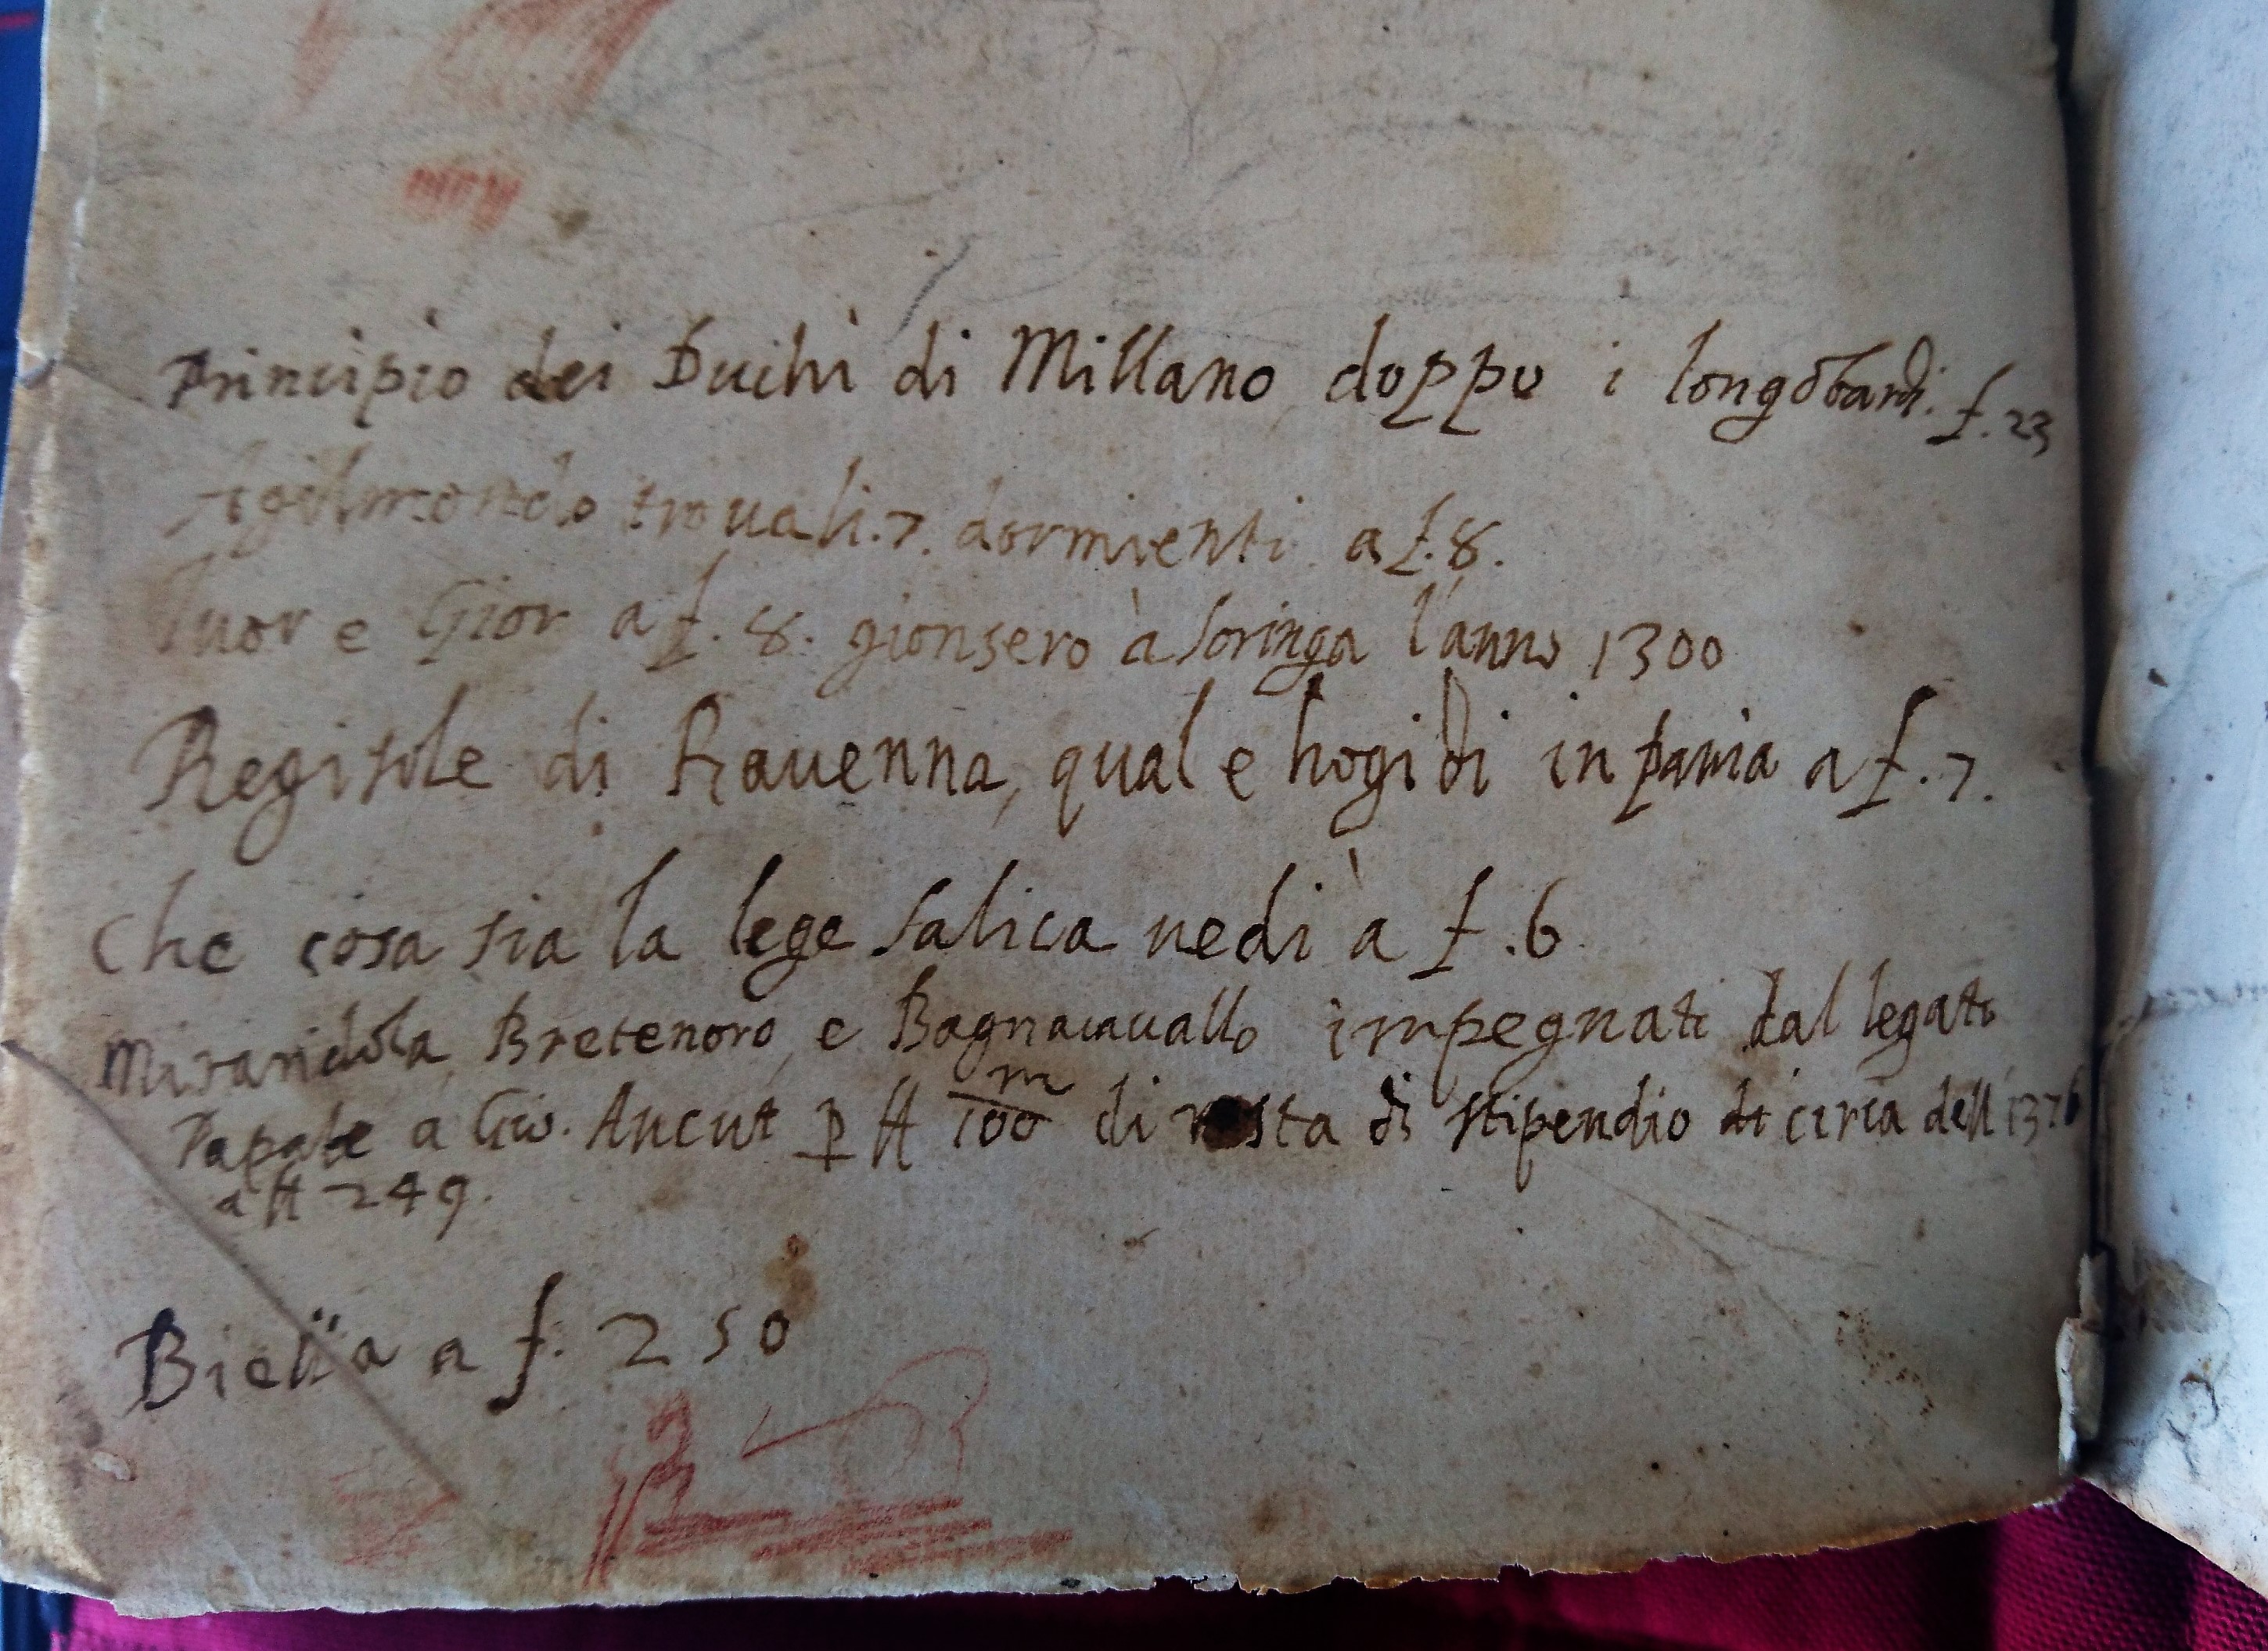 Principio dei Duchi di Millano doppo i longobardi. f. 23
Agilmondo trouali. 7. dormienti a f. 8.
e Gior a f. 8. gionsero à Soringa l'anno 1300
Regisole di Rauenna, qual e hogidi in pauia a f. 7.
Che cosa sia la lege salica uedi à f. 6
Mirandola, Bretenoro, e Bagnacauallo impegnati dal legato
Papale a Gio. Aucut p ff 100 m di resta di stipendio di circa dell 1376
a ff 249.
Biella a f. 250